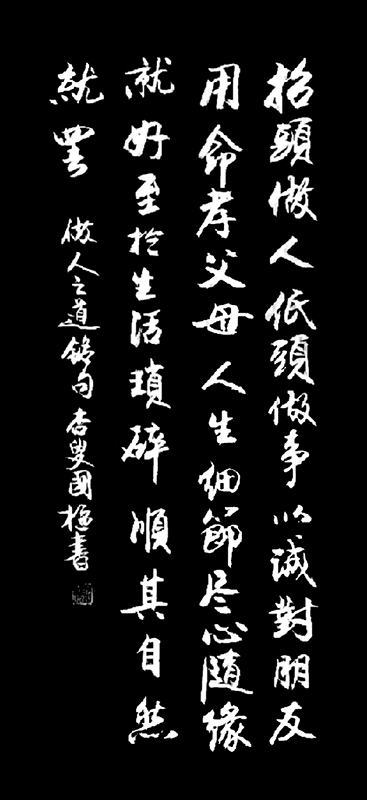 抬頭做人低頭做事以誠對朋友
用命孝父母人生細節尽心隨緣
就好至於生活瑣碎順其自然
就罢 做人之道銘句杏叟國極書